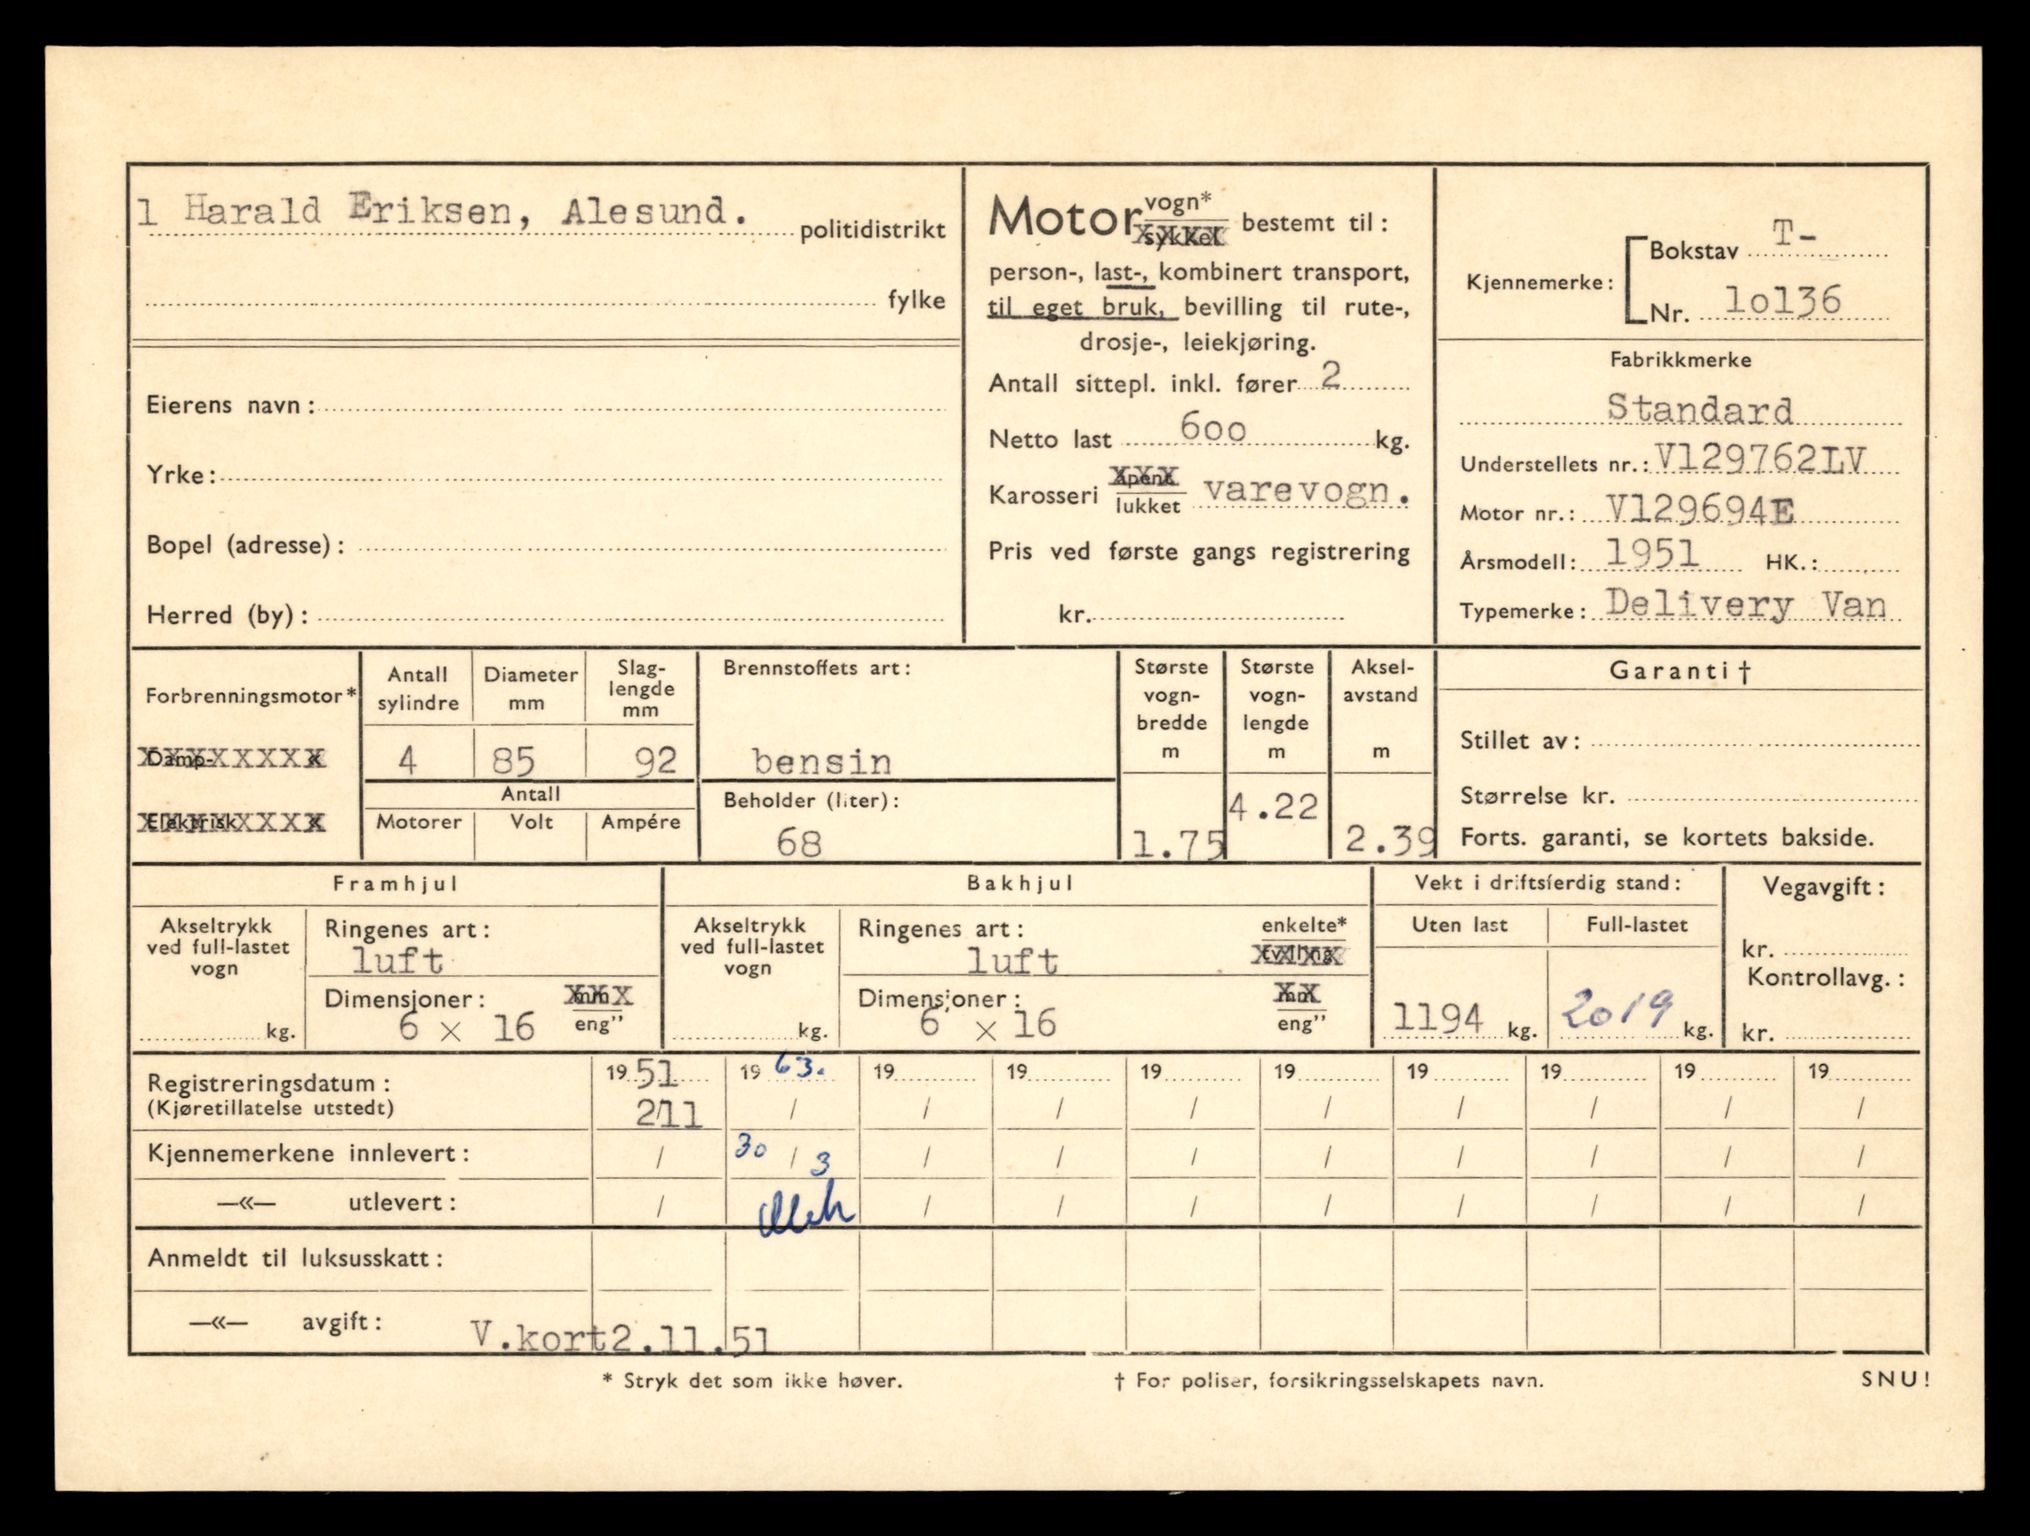 1 Harald Eriksen, Alesund. politidistrikt
fylke
Eierens navn:
Yrke:
Bopel (adresse):
Herred (by):
Motor vogn* / sykkel bestemt til:
person-, last-, kombinert transport,
til eget bruk, bevilling til rute-,
drosje-, leiekjøring.
Antall sittepl. inkl. fører 2
Netto last 600 kg.
Karosseri åpent / lukket varevogn.
Pris ved første gangs registrering
kr.
Kjennemerke: Bokstav T-
Nr. 10136
Fabrikkmerke
Standard
Understellets nr.: V129762LV
Motor nr.: V129694E
Årsmodell: 1951 HK.:
Typemerke: Delivery Van
Forbrenningsmotor*
XXXXXXXX
Damp-
XXXXXXXX
Elektrisk
Antall sylindre
4
Diameter mm
85
Slag-lengde mm
92
Antall
Motorer Volt Ampére
Brennstoffets art:
bensin
Beholder (liter):
68
Største vogn-bredde m
1.75
Største vogn-lengde m
4.22
Aksel-avstand m
2.39
Garanti †
Stillet av:
Størrelse kr.
Forts. garanti, se kortets bakside.
Framhjul
Akseltrykk ved full-lastet vogn
kg.
Ringenes art:
luft
Dimensjoner: mm / eng”
6 x 16
Bakhjul
Akseltrykk ved full-lastet vogn
kg.
Ringenes art: enkelte* / tvilling
luft
Dimensjoner: mm / eng”
6 x 16
Vekt i driftsferdig stand:
Uten last Full-lastet
1194 kg. 2019 kg.
Vegavgift:
kr.
Kontrollavg.:
kr.
Registreringsdatum: 1951 1963. 19 19 19 19 19 19 19 19
(Kjøretillatelse utstedt) 2/11 / / / / / / / / /
Kjennemerkene innlevert: / 30/3 / / / / / / / /
—«— utlevert: / / / / / / / / /
Anmeldt til luksusskatt:
—«— avgift: V.kort2.11.51
* Stryk det som ikke høver. † For poliser, forsikringsselskapets navn. SNU!